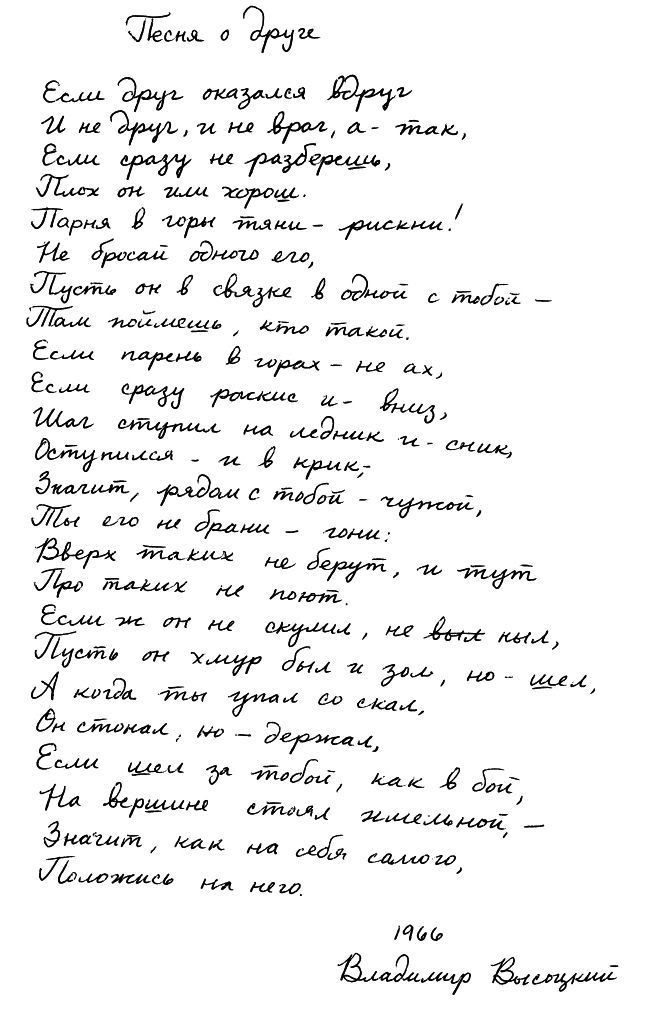 Песня о друге
Если друг оказался вдруг
И не друг, и не враг, а - так,
Если сразу не разберешь,
Плох он или хорош.
Парня в горы тяни - рискни!
Не бросай одного его,
Пусть он в связке в одной с тобой -
Там поймешь, кто такой.
Если парень в горах - не ах,
Если сразу раскис и - вниз,
Шаг ступил на ледник и - сник,
Оступился - и в крик,-
Значит, рядом с тобой - чужой,
Ты его не брани - гони:
Вверх таких не берут, и тут
Про таких не поют.
Если ж он не скулил, не выл ныл,
Пусть он хмур был и зол, но - шел,
А когда ты упал со скал,
Он стонал, но - держал,
Если шел за тобой, как в бой,
На вершине стоял хмельной, -
Значит, как на себя самого,
Положись на него.
1966
Владимир Высоцкий